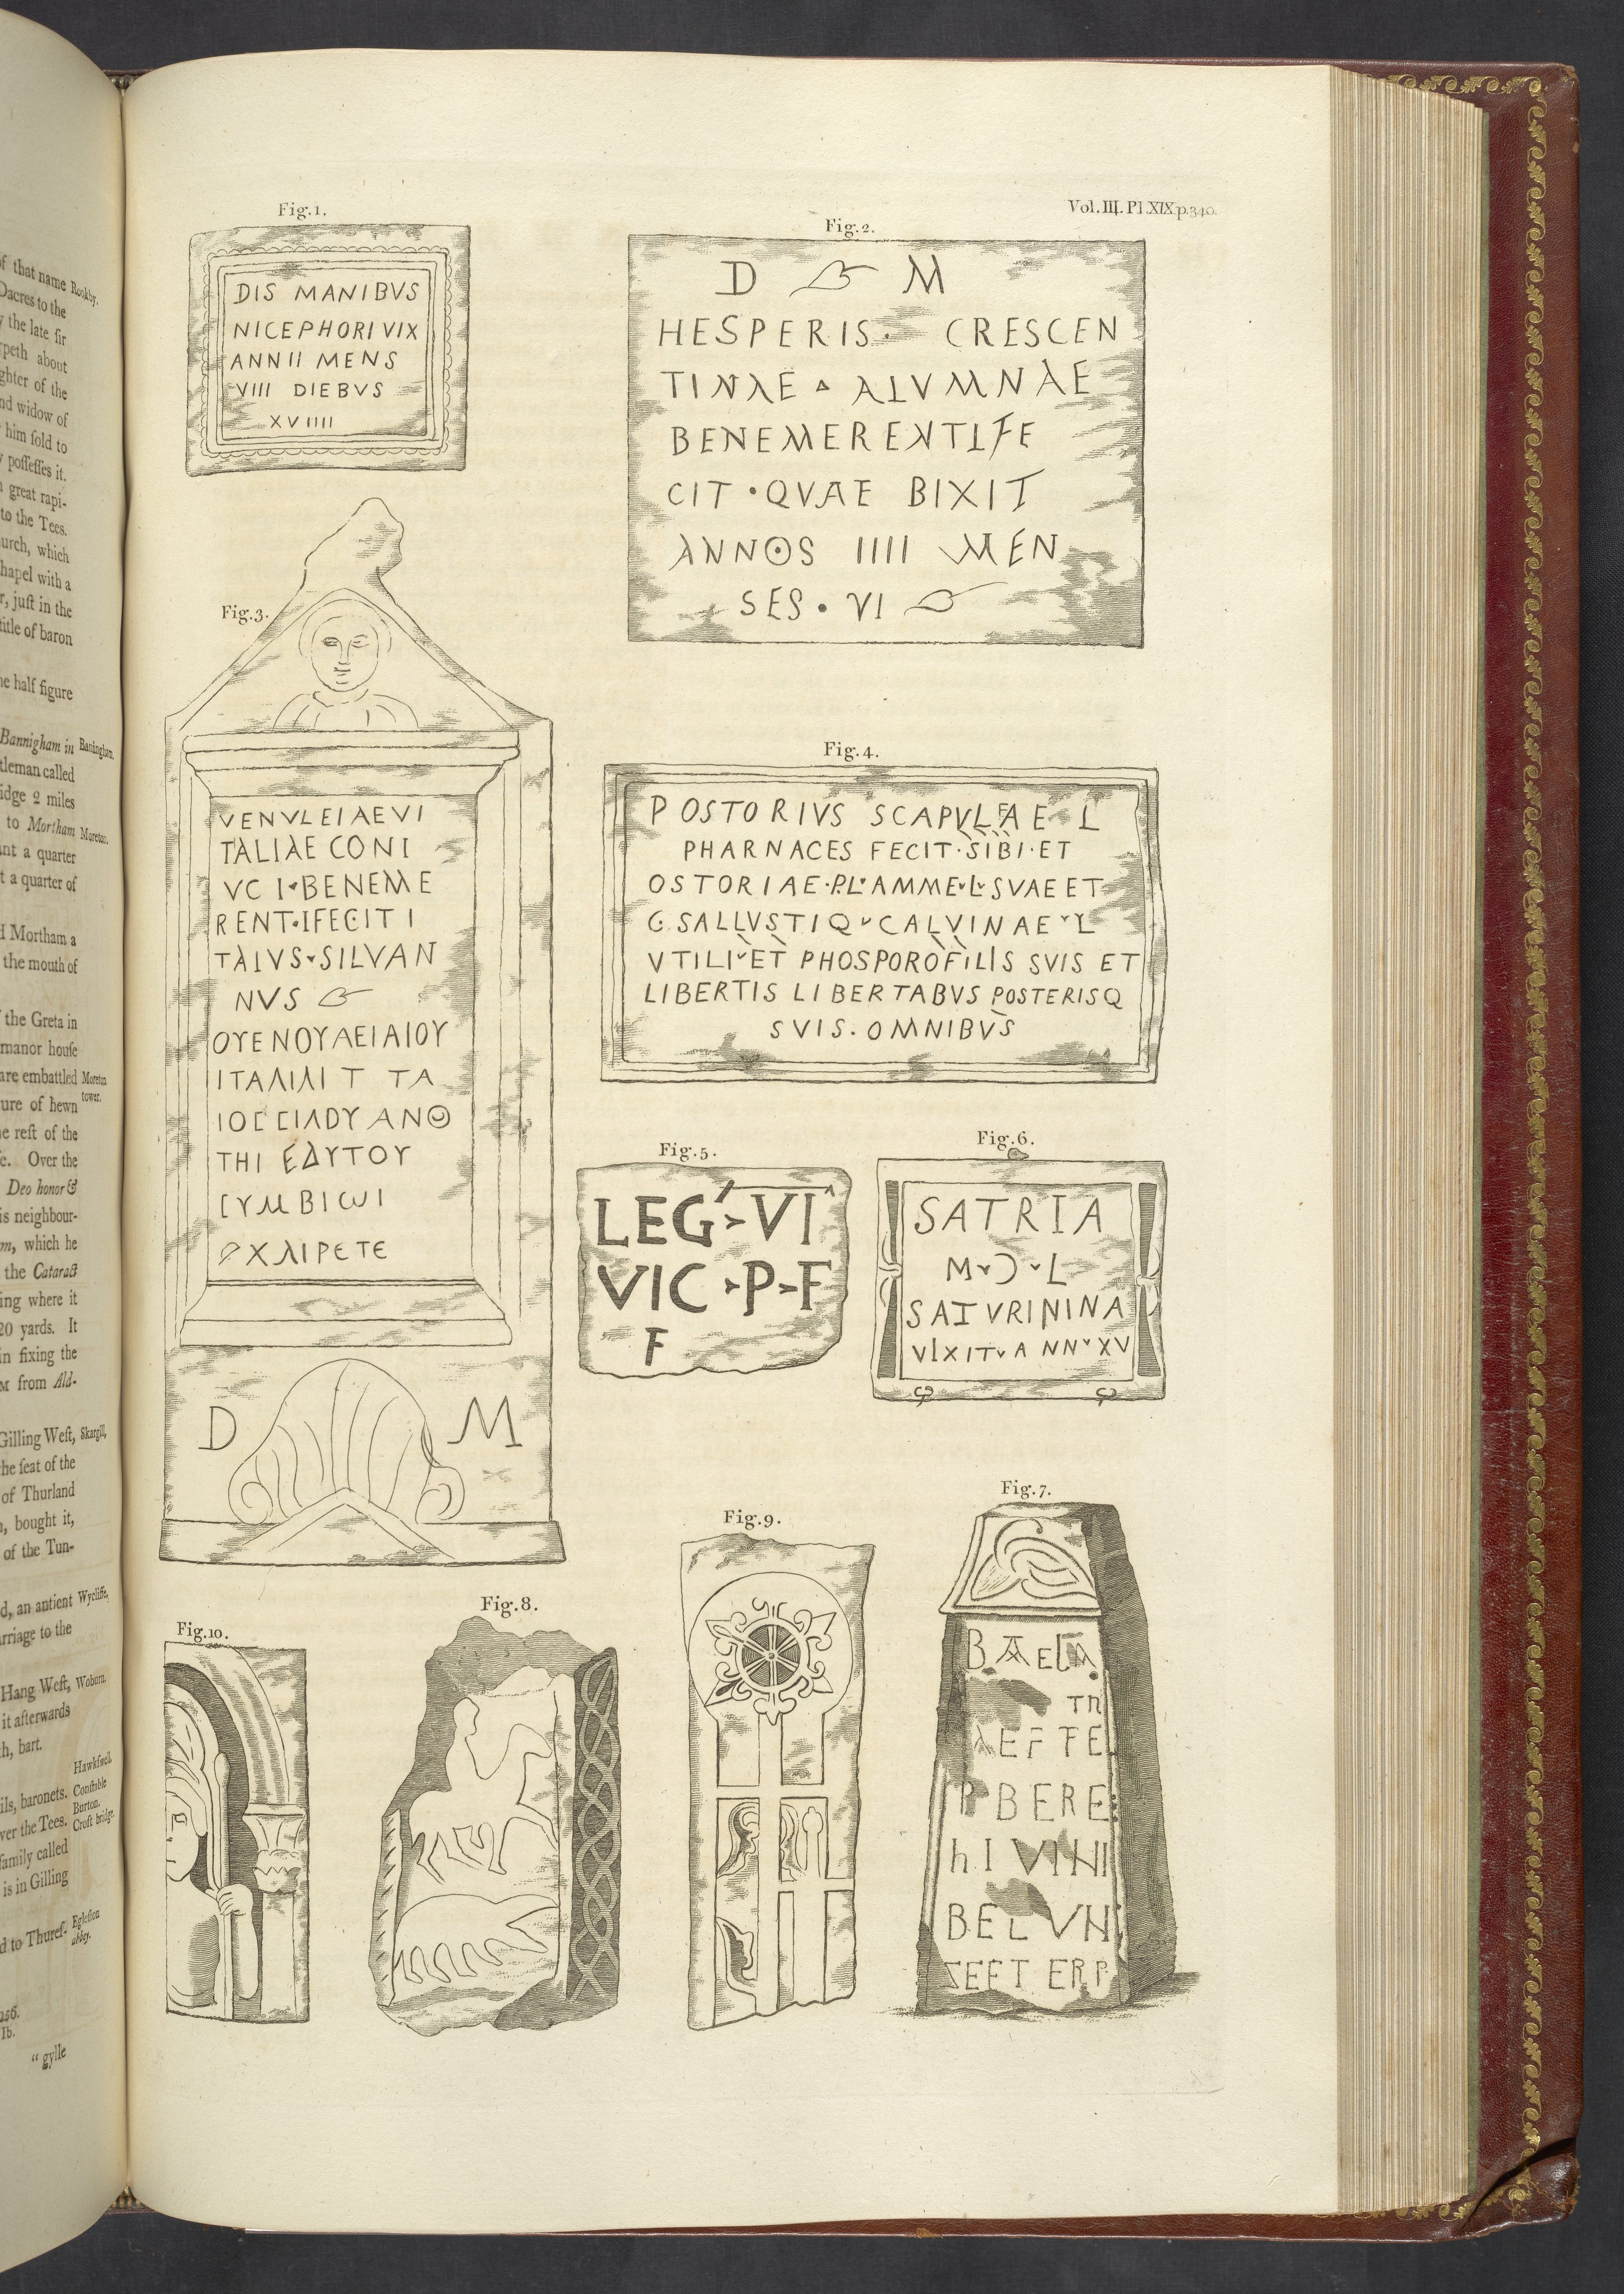 of that name Rookby.
Dacres to the
y the late sir
rpeth about
ghter of the
nd widow of
him sold to
y possesses it.
great rapi-
to the Tees.
urch, which
hapel with a
r, just in the
title of baron
he half figure
Bannigham in Baningham.
tleman called
idge 2 miles
to Mortham Moreton.
ant a quarter
t a quarter of
d Mortham a
the mouth of
the Greta in
manor house
are embattled Moreton
tower.
ure of hewn
he rest of the
e. Over the
Deo honor &
is neighbour-
m, which he
the Cataract
ing where it
20 yards. It
in fixing the
M from Ald-
Gilling West, Skargill,
he seat of the
of Thurland
, bought it,
of the Tun-
d, an antient Wycliffe,
rriage to the
Hang West, Woburn.
it afterwards
h, bart.
Hawkswell.
ils, baronets. Constable
Burton.
ver the Tees. Croft bridge.
family called
is in Gilling
d to Thuref- Egleston
abbey.
256.
Ib.
“ gylle
Vol. III. Pl. XIX. p. 340.
Fig. 1.
DIS MANIBVS
NICEPHORI VIX
ANNII MENS
VIIII DIEBVS
XVIIII
Fig. 2.
D M
HESPERIS · CRESCEN
TINAE ▵ ALVMNAE
BENEMERENTI FE
CIT · QVAE BIXIT
ANNOS IIII MEN
SES · VI
Fig. 3.
VENVLEIAEVI
TALIAE CONI
VC I · BENEME
RENT·IFECITI
TAIVS SILVAN
NVS
ΟΥΕΝΟΥΛΕΙΑΙΟΥ
ΙΤΑΛΙΛΙ Τ ΤΑ
ΙΟΣ ΣΙΛΟΥΑΝΘ
ΤΗΙ ΕΔΥΤΟΥ
ΣΥΜΒΙωΙ
ΧΑΙΡΕΤΕ
D M
Fig. 4.
P OSTORIVS SCAPVLAE L
PHARNACES FECIT · SIBI · ET
OSTORIAE · P.L AMME L SVAE ET
C · SALLVSTI Q CALVINAE L
VTILI ET PHOSPORO FILIS SVIS ET
LIBERTIS LIBERTABVS POSTERISQ
SVIS · OMNIBVS
Fig. 5.
LEG VI
VIC P F
F
Fig. 6.
SATRIA
M Ɔ L
SATVRININA
VIXIT ANN XV
Fig. 7.
BAEDA
TR
AEFTE
R BERE
hI VINI
BECVN
SEFT ERP
Fig. 8.
Fig. 9.
Fig. 10.